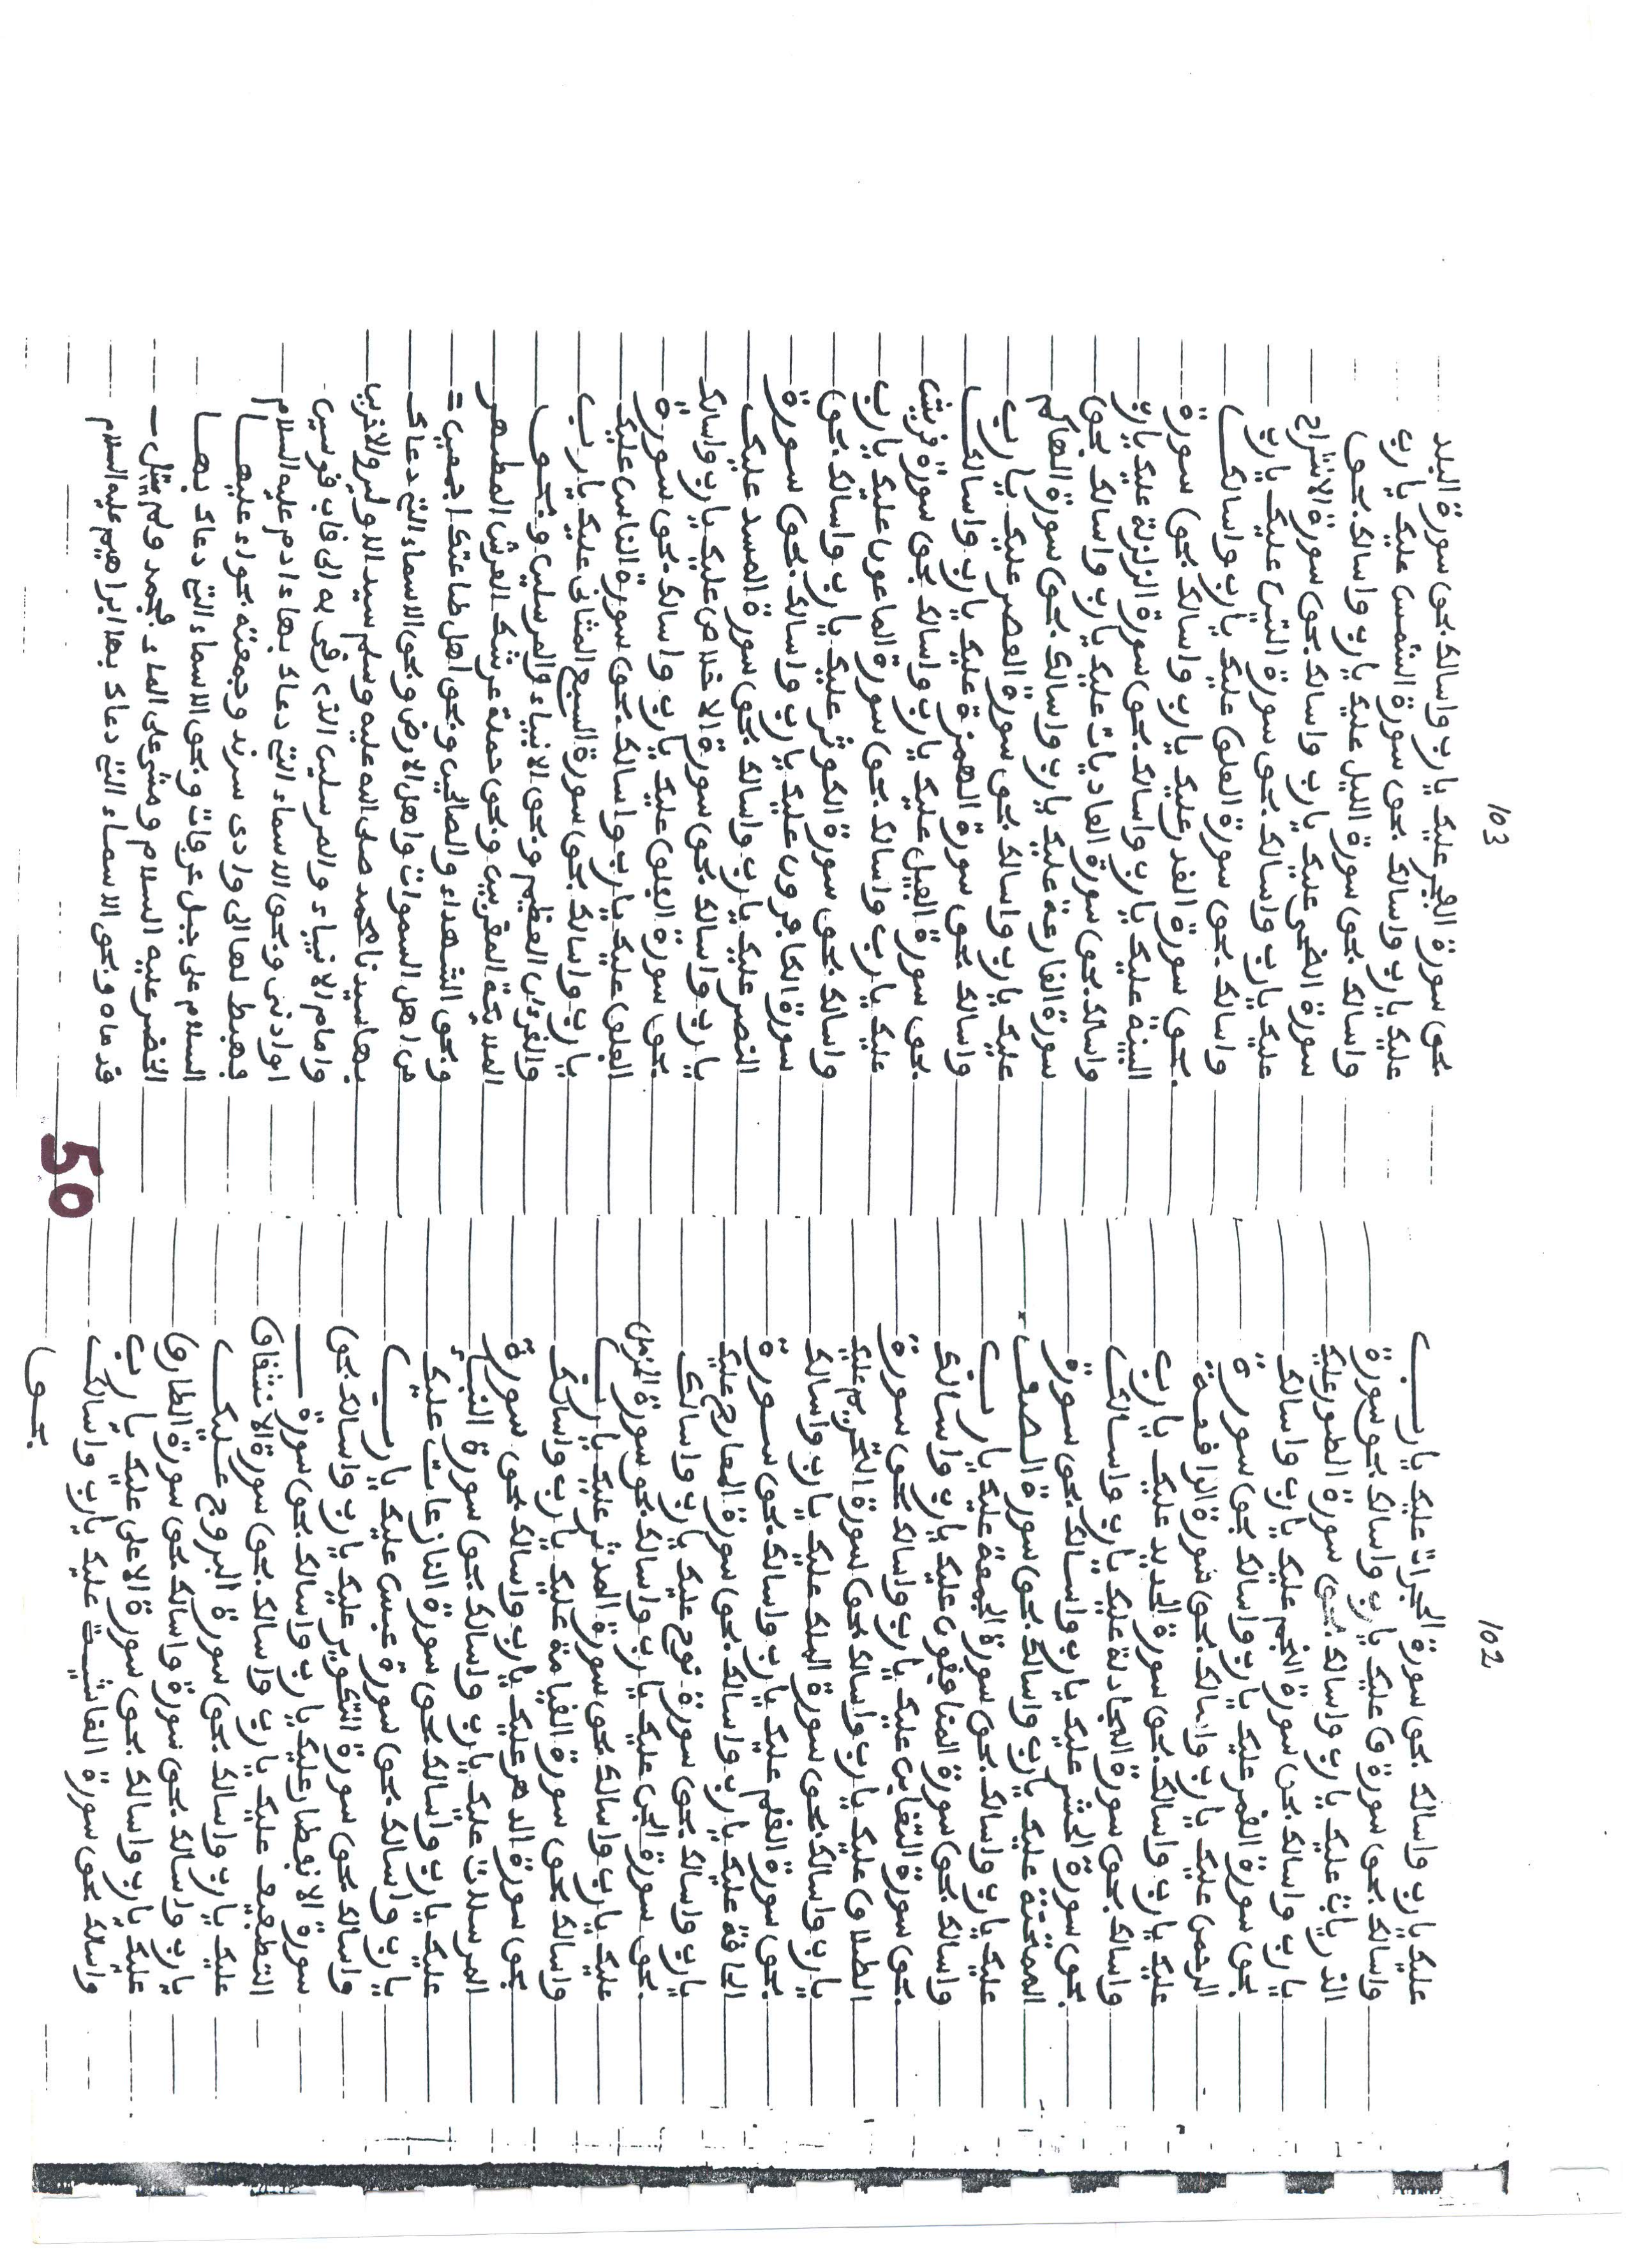 102
عليك يارب واسالك بحق سورة الحجرات عليك يارب
واسالك بحق سورة ق عليك يارب واسالك بحق سورة
الذريات عليك يارب واسالك بحق سورة الطور عليك
يارب واسالك بحق سورة النجم عليك يارب واسالك
بحق سورة القمر عليك يارب واسالك بحق سورة
الرحمن عليك يارب واسالك بحق سورة الواقعة
عليك يارب واسالك بحق سورة الحديد عليك يارب
واسالك بحق سورة المجادلة عليك يارب واسالك
بحق سورة الحشر عليك يارب واسالك بحق سورة
الممتحنة عليك يارب واسالك بحق سورة الصف
عليك يارب واسالك بحق سورة الجمعة عليك يارب
واسالك بحق سورة المنافقون عليك يارب واسالك
بحق سورة التغابن عليك يارب واسالك بحق سورة
الطلاق عليك يارب واسالك بحق سورة التحريم عليك
يارب واسالك بحق سورة الملك عليك يارب واسالك
بحق سورة القلم عليك يارب واسالك بحق سورة
الحاقة عليك يارب واسالك بحق سورة المعارج عليك
يارب واسالك بحق سورة نوح عليك يارب واسالك
بحق سورة الجن عليك يارب واسالك بحق سورة المزمل
عليك يارب واسالك بحق سورة المدثر عليك يارب
واسالك بحق سورة القيامة عليك يارب واسالك
بحق سورة الدهر عليك يارب واسالك بحق سورة
المرسلات عليك يارب واسالك بحق سورة النبأ
عليك يارب واسالك بحق سورة النازعات عليك
يارب واسالك بحق سورة عبس عليك يارب
واسالك بحق سورة التكوير عليك يارب واسالك بحق
سورة الانفطار عليك يارب واسالك بحق سورة
التطفيف عليك يارب واسالك بحق سورة الانشقاق
عليك يارب واسالك بحق سورة البروج عليك
يارب واسالك بحق سورة واسالك بحق سورة الطارق
عليك يارب واسالك بحق سورة الاعلى عليك يارب
واسالك بحق سورة الغاشيت عليك يارب واسالك
بحق
103
بحق سورة الفجر عليك يارب واسالك بحق سورة البلد
عليك يارب واسالك بحق سورة الشمس عليك يارب
واسالك بحق سورة الليل عليك يارب واسالك بحق
سورة الضحى عليك يارب واسالك بحق سورة الانشراح
عليك يارب واسالك بحق سورة التين عليك يارب
واسالك بحق سورة العلق عليك يارب واسالك
بحق سورة القدر عليك يارب واسالك بحق سورة
البينة عليك يارب واسالك بحق سورة الزلزلة عليك يارب
واسالك بحق سورة العاديات عليك يارب واسالك بحق
سورة القارعة عليك يارب واسالك بحق سورة الهاكم
عليك يارب واسالك بحق سورة العصر عليك يارب
واسالك بحق سورة الهمزة عليك يارب واسالك
بحق سورة الفيل عليك يارب واسالك بحق سورة قريش
عليك يارب واسالك بحق سورة الماعون عليك يارب
واسالك بحق سورة الكوثر عليك يارب واسالك بحق
سورة الكافرون عليك يارب واسالك بحق سورة
النصر عليك يارب واسالك بحق سورة المسد عليك
يارب واسالك بحق سورة الاخلاص عليك يارب واسالك
بحق سورة الفلق عليك يارب واسالك بحق سورة
الفلق عليك يارب واسالك بحق سورة الناس عليك
يارب واسالك بحق سورة السبع المثانى عليك يارب
والقرءان العظيم وبحق الانبياء والمرسلين وبحق
الملائكة المقربين وبحق حملة عرشك العرش المطهر
وبحق الشهداء والصالحين وبحق اهل طاعتك اجمعين
من اهل السموات واهل الارض وبحق الاسماء التي دعاك
بها سيدنا محمد صلى الله عليه وسلم سيد الاولين والاخرين
وامام الانبياء والمرسلين الذى رقى به الى قاب قوسين
او ادنى وبحق الاسماء التي دعاك بها ءادم عليه السلام
فهبط لها الى وادى سرند وجمعته بحواء عليها
السلام على جبل عرفات وبحق الاسماء التي دعاك بها
الخضر عليه السلام ومشى على الماء فجمد ولم تبتل
قدماه وبحق الاسماء التي دعاك بها ابراهيم عليه السلام
50